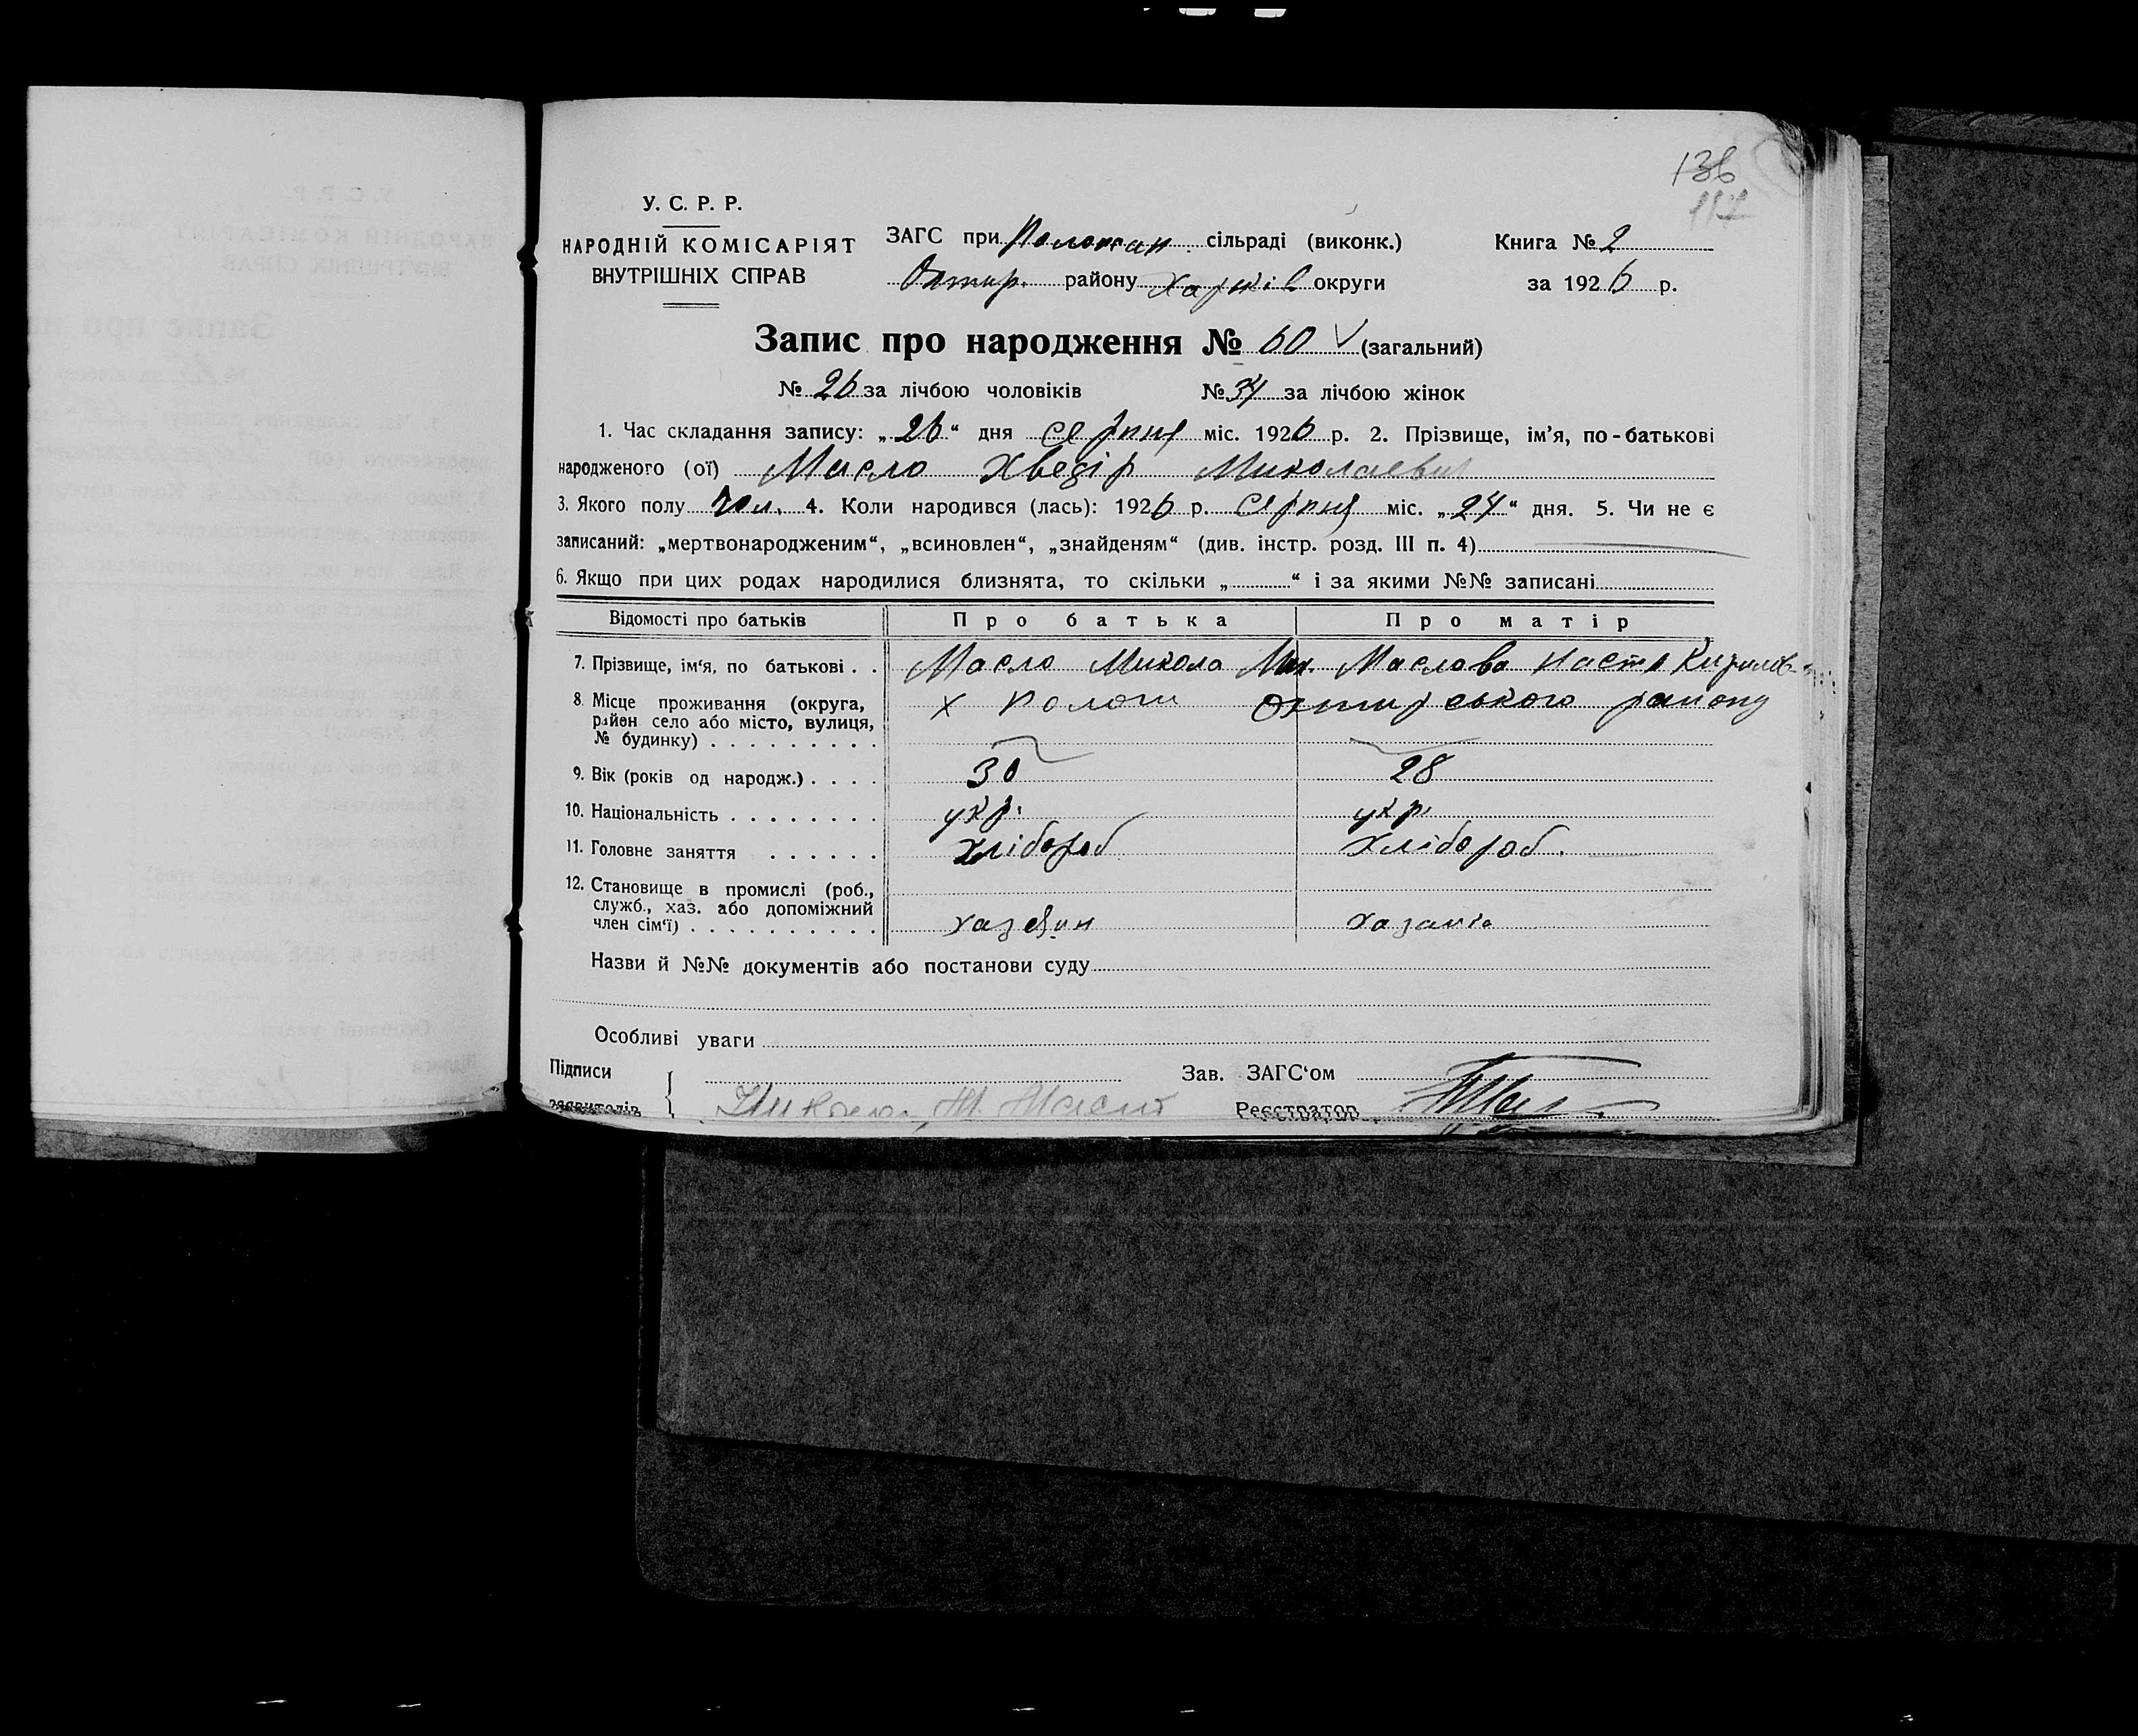 136
117
У. С. Р. Р.
НАРОДНІЙ КОМІСАРІЯТ
ВНУТРІШНІХ СПРАВ
ЗАГС при сільраді (виконк.)
Охтир. району Харків округи
Книга № 2
за 1926 р.
Запис про народження № 60 (загальний)
№ 26 за лічбою чоловіків № 34 за лічбою жінок
1. Час складання запису: „26“ дня серпня міс. 1926 р. 2. Прізвище, ім'я, по-батькові
народженого (ої) Масло Хведір Миколаевич
3. Якого полу чол. 4. Коли народився (лась): 1926 р. серпня міс. „24“ дня. 5. Чи не є
записаний: „мертвонародженим“, „всиновлен“, „знайденям“ (див. інстр. розд. III п. 4)
6. Якщо при цих родах народилися близнята, то скільки „ “ і за якими №№ записані
Відомості про батьків Про батька Про матір
7. Прізвище, ім'я, по батькові . . Масло Микола Мих. Маслова Настя Кирилов
8. Місце проживання (округа, х Пологи Охтирського району
район село або місто, вулиця,
№ будинку) . . . . . . . . .
9. Вік (років од народж.) . . . . 30 28
10. Національність . . . . . . . . укр. укр.
11. Головне заняття . . . . . . хлібороб хлібороб.
12. Становище в промислі (роб.,
служб., хаз. або допоміжний
член сім'ї) . . . . . . . . . . хазеин
Назви й №№ документів або постанови суду
Особливі уваги
Підписи Зав. ЗАГС'ом
заявителів { Реєстратор